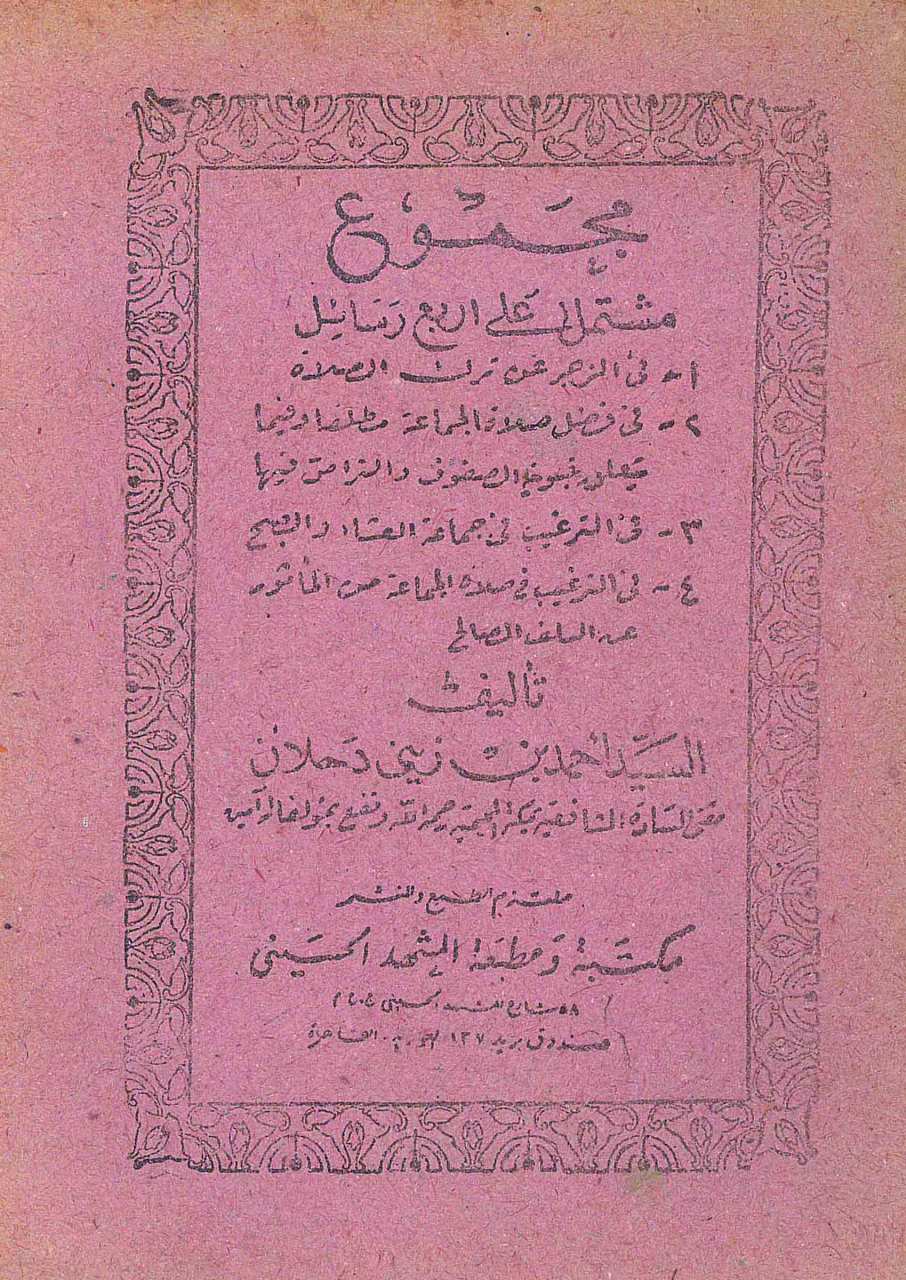 مجموع
مشتمل على اربع رسائل
١ - فى الزجر عن ترك الصلاة
٢ - فى فضل صلاة الجماعة مطلقا وفيما
يتعلق بتسوية الصفوف والتراص فيها
٣ - فى الترغيب فى جماعة العشاء والصبح
٤ - فى الترغيب فى صلاة الجماعة من المأثور
عن السلف الصالح
تأليف
السيد أحمد بن زينى دحلان
مفتى السادة الشافعية بمكة المحمية رحمه الله ونفع بمؤلفاته آمين
ملتزم الطبع والنشر
مكتبة ومطبعة المشهد الحسينى
شارع المشهد الحسينى
صندوق بريد ١٣٧ الغورية - القاهرة